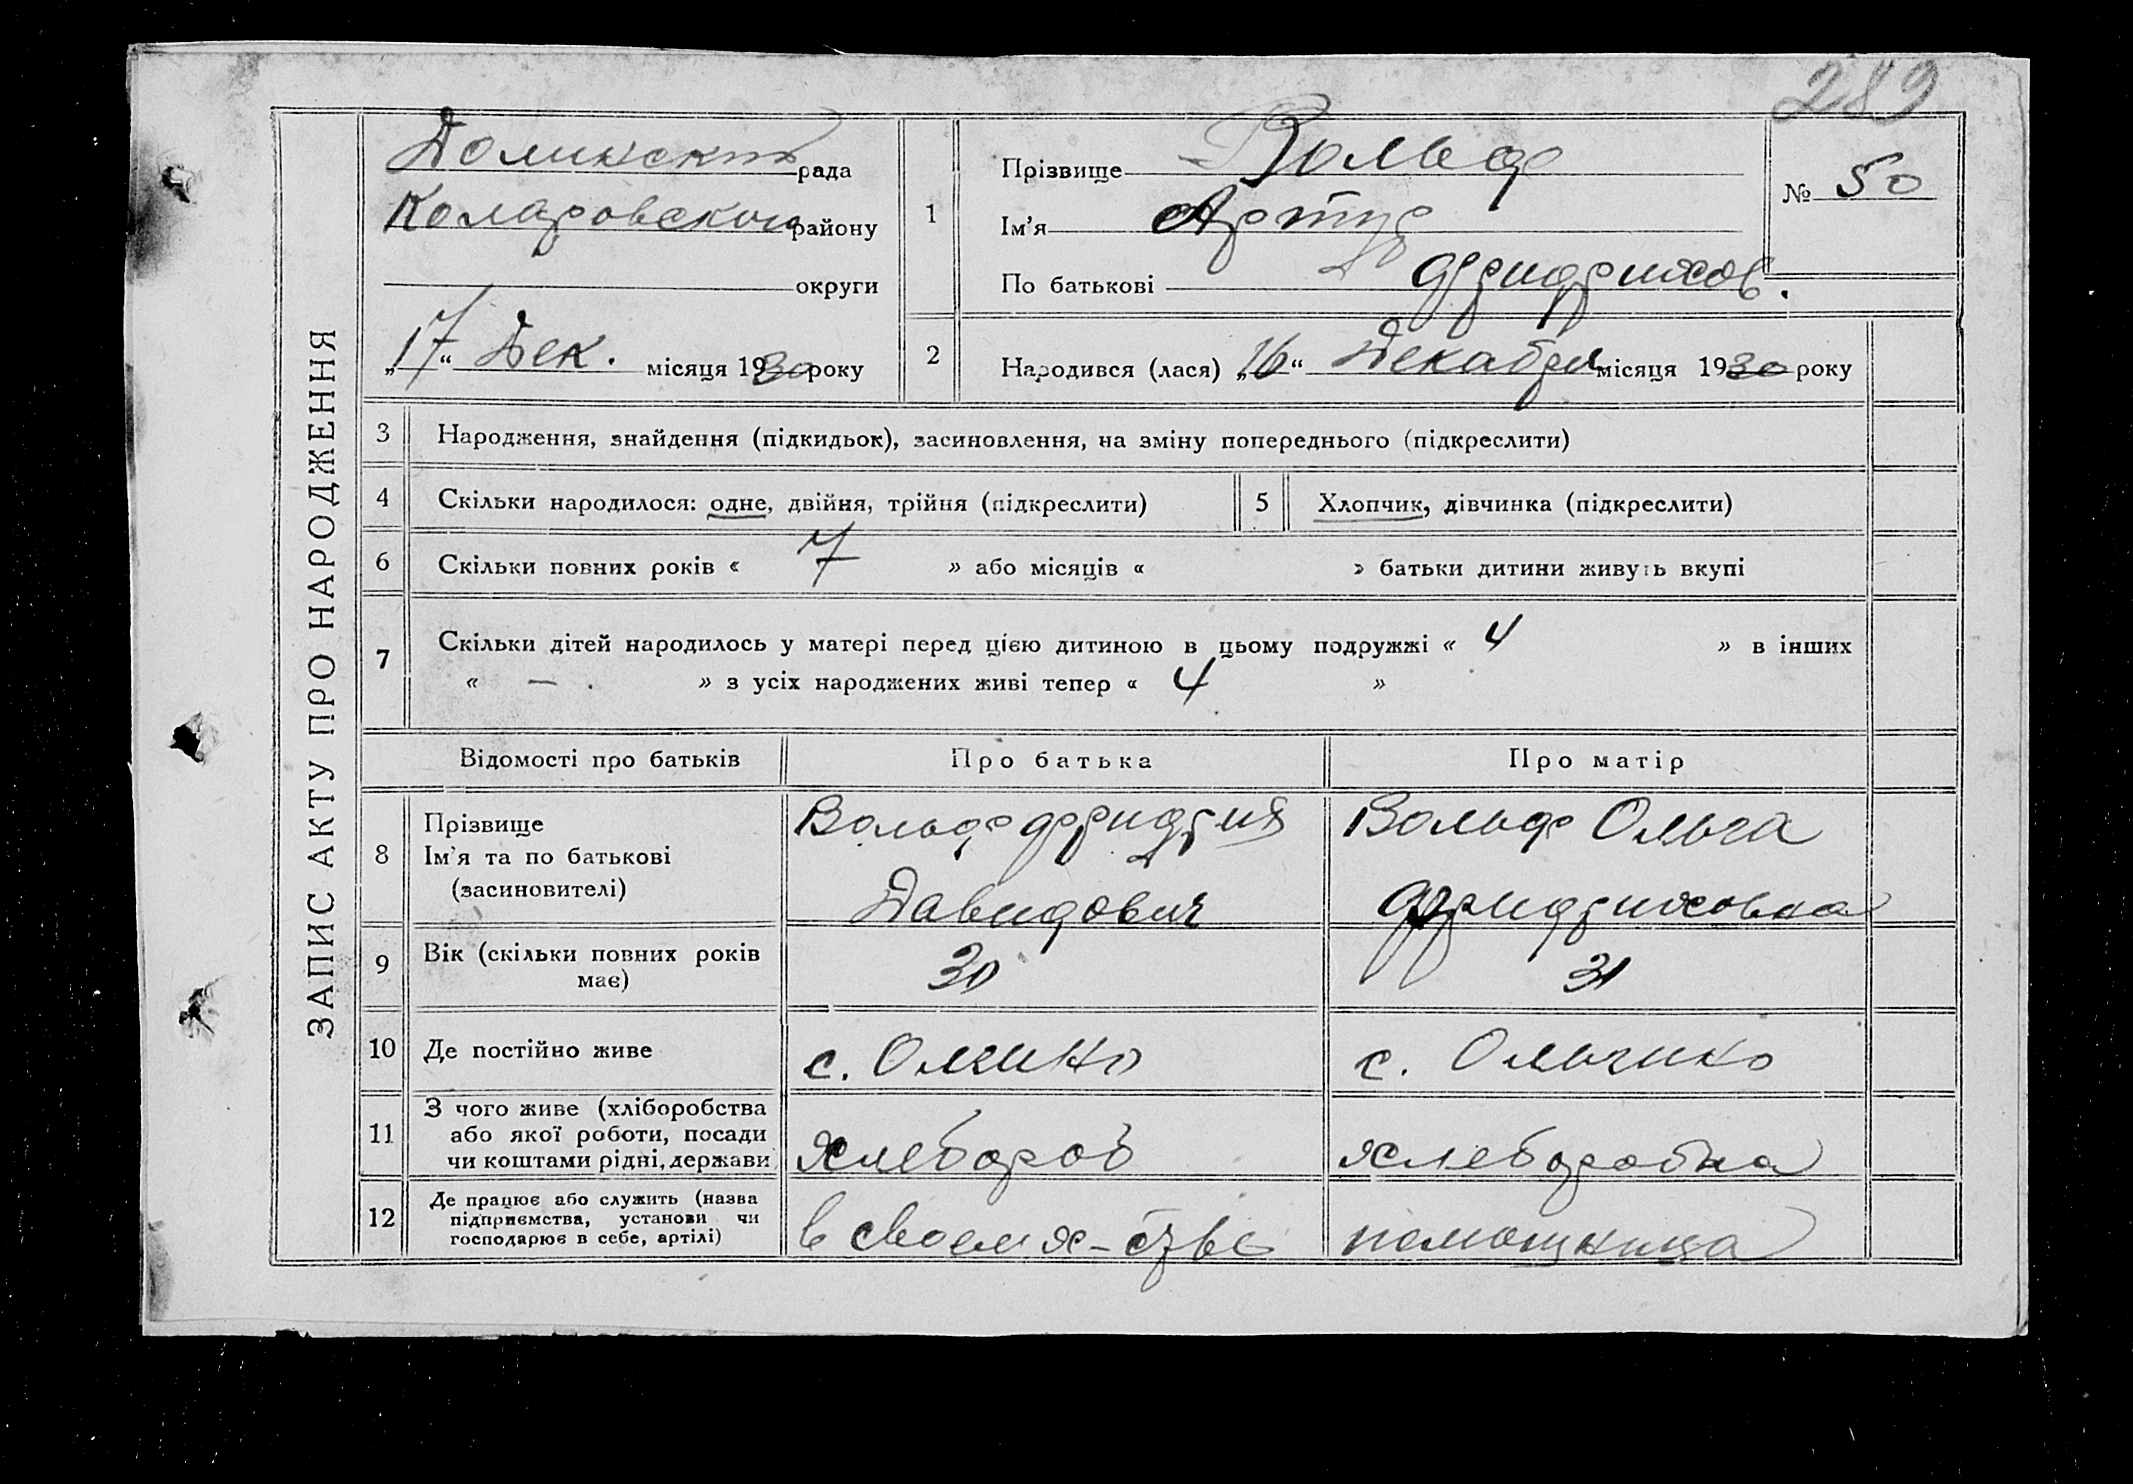 289
ЗАПИС АКТУ ПРО НАРОДЖЕННЯ
Долинск рада
Коларовского району
округи
„17“ Дек. місяця 1930 року
1
Прізвище Вольф
Ім’я Артур
По батькові Фридрихов.
№ 50
2
Народився (лася) „16“ Декабря місяця 1930 року
3 Народження, знайдення (підкидьок), засиновлення, на зміну попереднього (підкреслити)
4 Скільки народилося: одне, двійня, трійня (підкреслити)
5 Хлопчик, дівчинка (підкреслити)
6 Скільки повних років « 7 » або місяців « » батьки дитини живуть вкупі
7 Скільки дітей народилось у матері перед цією дитиною в цьому подружжі « 4 » в інших
« — . » з усіх народжених живі тепер « 4 »
Відомості про батьків
Про батька
Про матір
8
Прізвище
Ім’я та по батькові
(засиновителі)
Вольф Фридрих
Давидович
Вольф Ольга
Фридриховна
9
Вік (скільки повних років
має)
30
31
10 Де постійно живе
с.
с. Ольгино
11
З чого живе (хліборобства
або якої роботи, посади
чи коштами рідні, держави
хлебороб
хлеборобка
12
Де працює або служить (назва
підприємства, установи чи
господарює в себе, артілі)
в своем х-стве
помошница